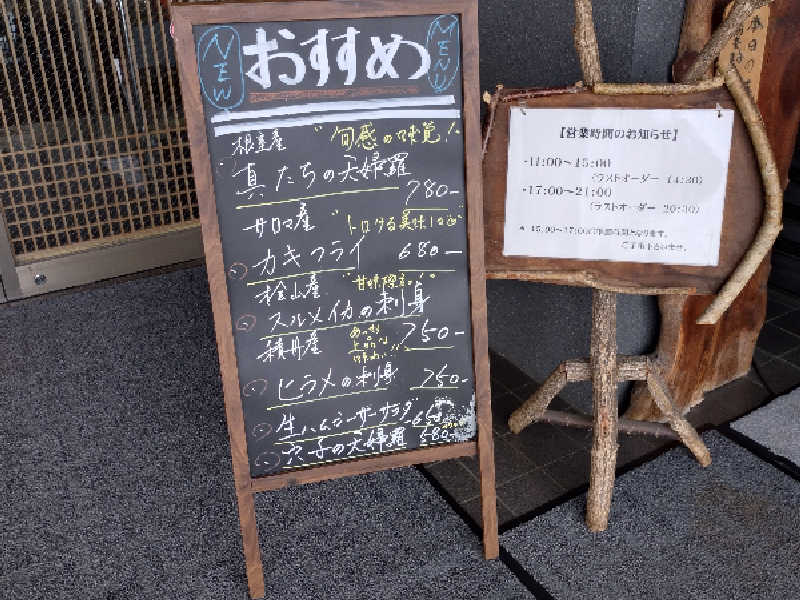 NEW
おすすめ
MENU
根室産 "旬感の味覚!"
真たちの天婦羅
780-
サロマ産
カキフライ 680-
桧山産
スルメイカの刺身
750-
積丹産
ヒラメの刺身 750-
生ハムシーザーサラダ 650-
穴子の天婦羅 680-
【営業時間のお知らせ】
・11:00～15:00
(ラストオーダー 14:30)
・17:00～21:00
(ラストオーダー 20:30)
本日の